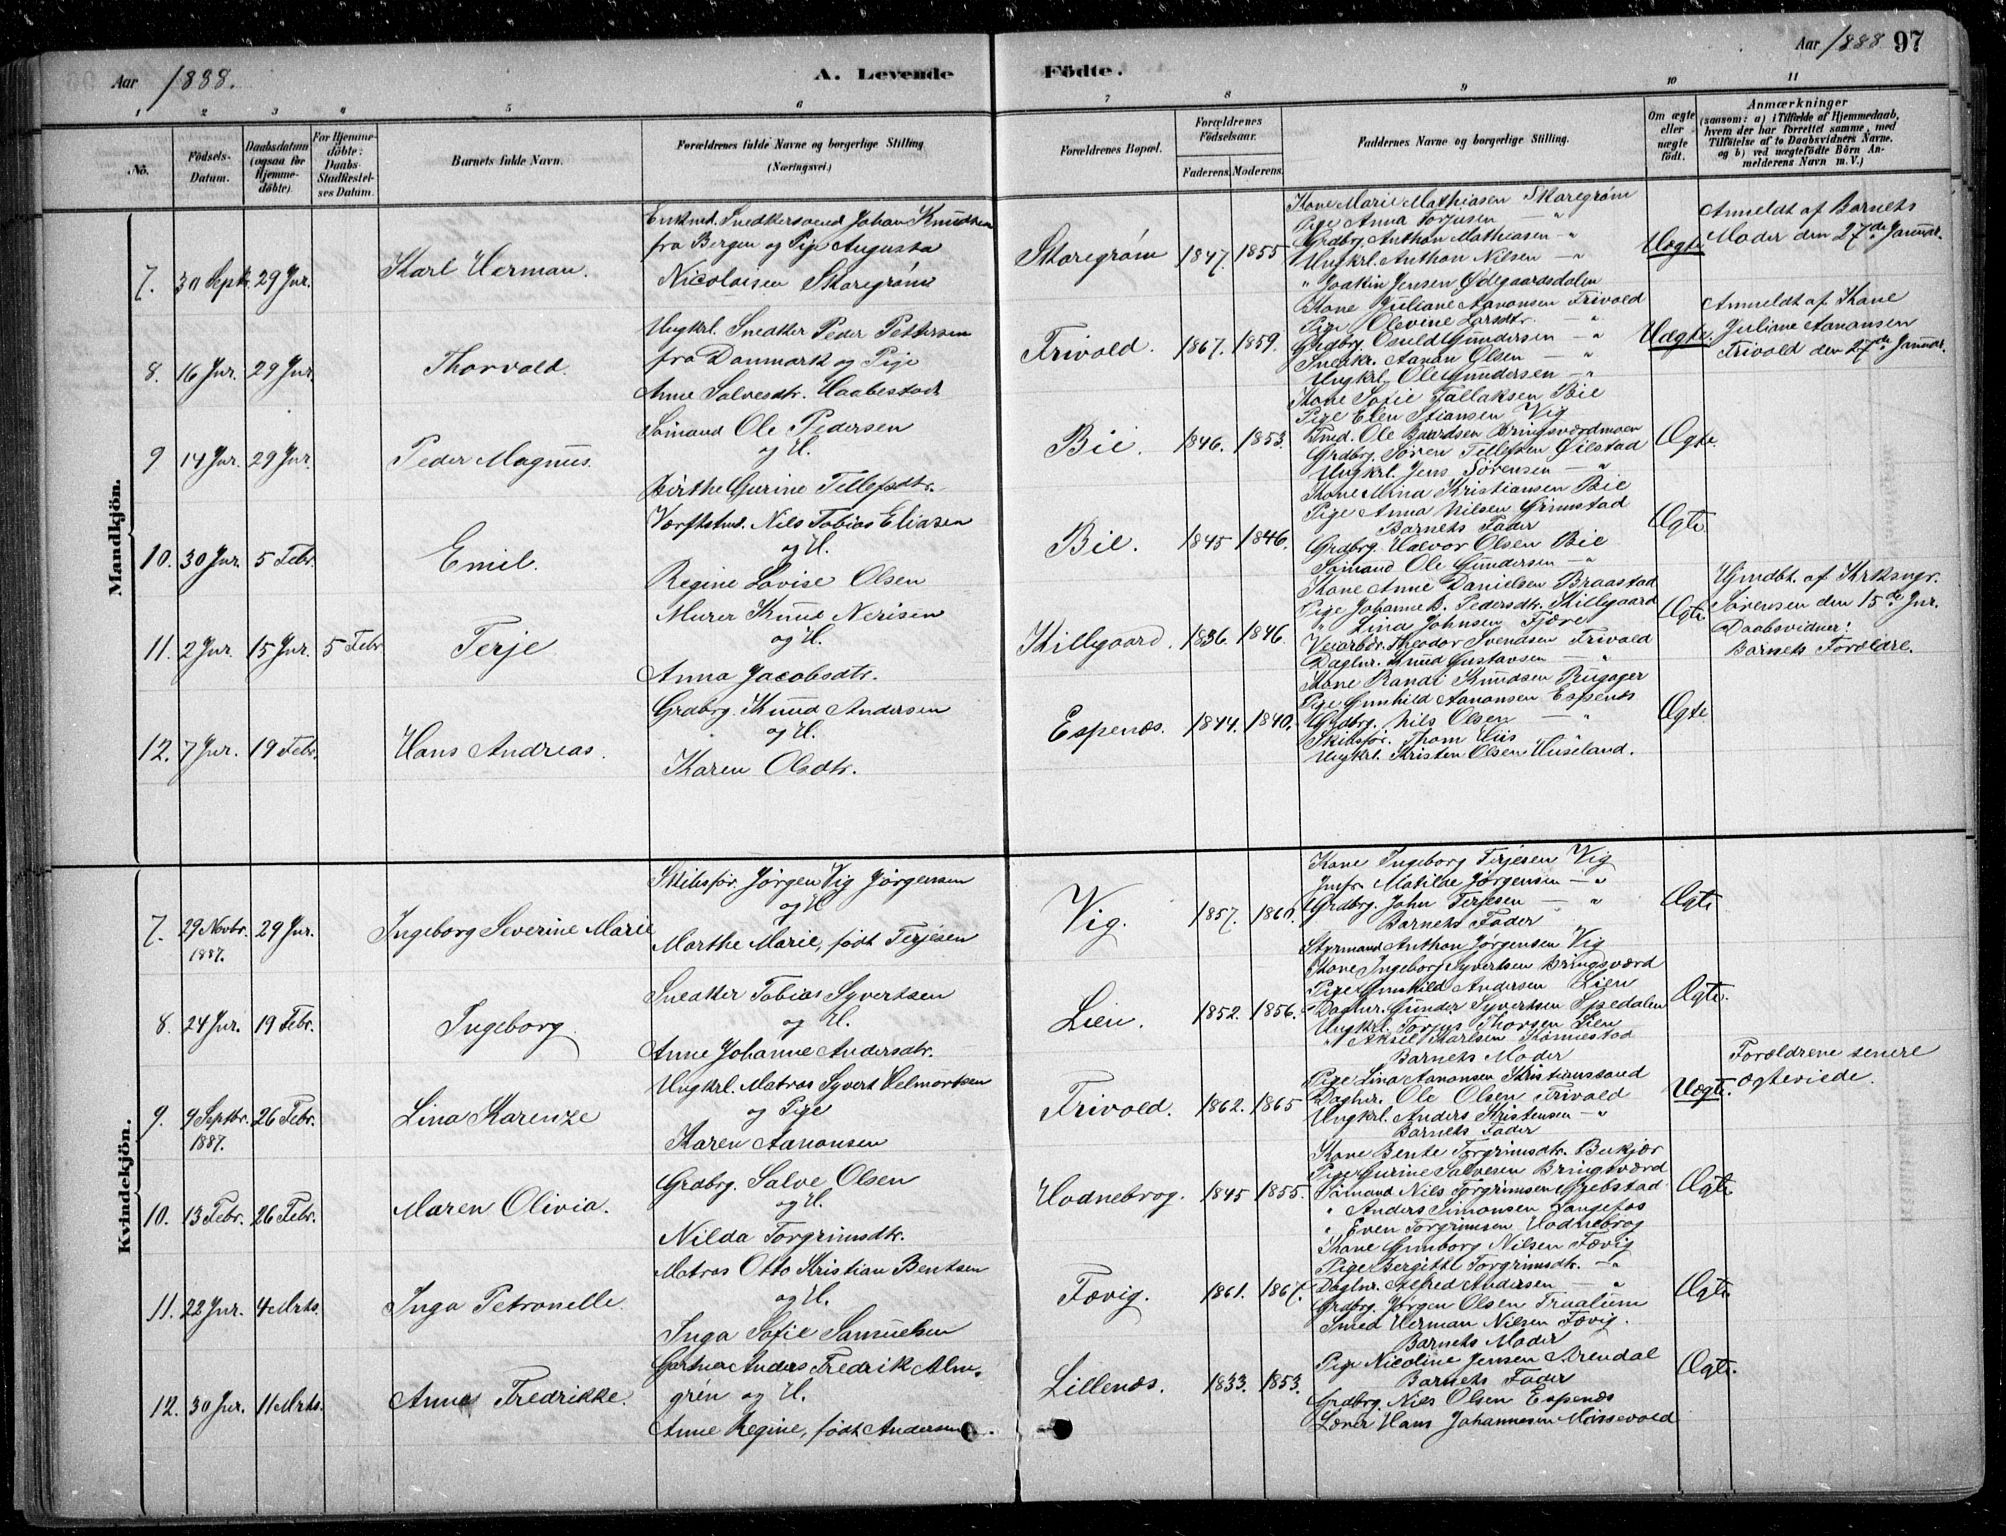 Aar 1888.
A. Levende
Födte.
Aar 1888 97
1 2 3 4 5 6 7 8 9 10 11
No.
Födsels-Datum.
Daabsdatum (ogsaa for Hjemmedöbte).
For Hjemmedöbte: Daabs-Stadfæstelses Datum.
Barnets fulde Navn.
Forældrenes fulde Navne og borgerlige Stilling (Næringsvei).
Forældrenes Bopæl.
Forældrenes Födselsaar.
Faderens. Moderens.
Faddernes Navne og borgerlige Stilling.
Om ægte eller uægte födt.
Anmærkninger
(saasom: a) i Tilfælde af Hjemmedaab, hvem der har forrettet samme, med Tilföielse af to Daabsvidners Navne. og b) ved uægtefödte Börn Anmelderens Navn m. V.)
Mandkjön.
7. 30 Septr. 29 Jnr.
Karl Herman.
Enkmd. Snedkersvend Johan Knudsen
fra Bergen og Pige Augusta
Nicolaisen Skaregrøm
Skaregrøm 1847. 1855
Kone Marie Mathiasen Skaregrøm
Pige Anna Torjusen — "
Grdbrg. Anthon Mathiasen — "
Ungkrl. Anthon Nilsen — "
" Joakin Jensen Ødegaardsdalen
Uægte
Anmeldt af Barnets
Moder den 27de Januar.
8. 16 Jnr. 29 Jnr.
Thorvald.
Ungkrl. Snedker Peder Pettersen
fra Danmark og Pige
Anne Salvesdtr. Haabestad
Trivold. 1867. 1859.
Kone Juliane Aanonsen Frivold
Pige Olevine Larsdtr. — "
Grdbrg. Osuld Gundersen — "
Snedkr. Aanon Olsen — "
Ungkrl. Ole Gundersen — "
Uægte
Anmeldt af Kone
Juliane Aanonsen
Frivold den 27de Januar.
9 14 Jnr. 29 Jnr.
Peder Magnus.
Sømand Ole Pedersen
og H.
Birthe Gurine Tellefsdtr.
Bie. 1846. 1853.
Kone Sofie Tallaksen Bie
Pige Elen Stiansen Vig
Smed. Ole Baardsen Bringsværdmoen
Grdbrg. Søren Tellefsen Øilestad
Ungkrl. Jens Sørensen — "
Ægte
10. 30 Jnr. 5 Febr.
Emil.
Værftstmd. Nils Tobias Eliasen
og H.
Regine Lovise Olsen
Bie. 1845 1846.
Kone Mina Kristiansen Bie
Pige Anna Nilsen Grimstad
Barnets Fader
Grdbrg. Halvor Olsen Bie
Sømand Ole Gundersen — "
Ægte
11. 2 Jnr. 15 Jnr. 5 Febr
Terje
Murer Knud Nerisen
og H.
Anna Jacobsdtr.
Killegaard. 1836. 1846.
Kone Anne Danielsen Braastad
Pige Johanne B. Pedersdtr. Killegaard
" Lina Johnsen Fjære
Veiarbdr. Theodor Svendsen Frivold
Daglnr. Knud Gustavsen — "
Ægte
Hjmdbt. af Krksngr.
Sørensen den 15de Jnr.
Daabsvidner:
Barnets Forældre.
12. 7 Jnr. 19 Febr.
Hans Andreas.
Grdbrg. Knud Andersen
og H.
Karen Olsdtr.
Espenæs. 1844. 1840.
Kone Randi Knudsen Rugager
Pige Gunhild Aanonsen Espenæs
Grdbrg. Nils Olsen — "
Skibsfør. Thom Hiis
Ungkrl. Kristen Olsen Huseland.
Ægte
Kvindekjön.
7. 29 Novbr. 1887. 29 Jnr.
Ingeborg Severine Marie
Skibsfør. Jørgen Vig Jørgensen
og H
Marthe Marie, født Terjesen
Vig. 1857. 1860.
Kone Ingeborg Terjesen Vig
Jmfr. Matilde Jørgensen — "
Grdbrg. John Terjesen — "
Barnets Fader
Styrmand Anthon Jørgensen Vig
Ægte
8. 24 Jnr. 19 Febr.
Ingeborg.
Snedker Tobias Syvertsen
og H.
Anne Johanne Andersdtr.
Lien. 1852. 1856.
Kone Ingeborg Syvertsen Bringsværd
Pige Gunhild Andersen Lien
Daglnr. Gunder Syvertsen Spedalen
Ungkrl. Torjus Thorsen Lien
" Aksel Karlsen Tønnestad
Ægte.
9. 9 Septbr. 1887. 26 Febr.
Lina Karenze
Ungkrl. Matros Syvert Helmertsen
og Pige
Karen Aanonsen
Trivold. 1862. 1865
Barnets Moder
Pige Lina Aanonsen Kristianssand
Daglnr. Ole Olsen Frivold
Ungkrl. Anders Kristensen — "
Barnets Fader
Uægte.
Forældrene senere
ægteviede.
10. 13 Febr. 26 Febr.
Maren Olivia.
Grdbrg. Salve Olsen
og H.
Nilda Torgrimsdtr.
Hodnebrog. 1845 1855.
Kone Bente Torgrimsdtr. Bukjær
Pige Gurine Salvesen Bringsværd
Sømand Nils Torgrimsen Grebstad
" Anders Simonsen Langefos
" Even Torgrimsen Hodnebrog
Ægte
11. 22 Jnr. 4 Mrts.
Inga Petronelle.
Matros Otto Kristian Bentsen
og H.
Inga Sofie Samuelsen
Fævig. 1861. 1867.
Kone Gunborg Nilsen Fævig
Pige Bergitte Torgrimsdtr. — "
Daglnr. Alfred Andersen — "
Grdbrg. Jørgen Olsen Trualum
Smed Herman Nilsen Fævig.
Ægte
12. 30 Jnr. 11 Mrts.
Anna Fredrikke.
Gartner Anders Fredrik Alm-
grén og H.
Anne Regine, født Andersen.
Lillenæs. 1833. 1853.
Barnets Moder
Pige Nicoline Jensen Arendal
Barnets Fader
Grdbrg. Nils Olsen Espenæs
Lærer Hans Johannesen Moisevold
Ægte.